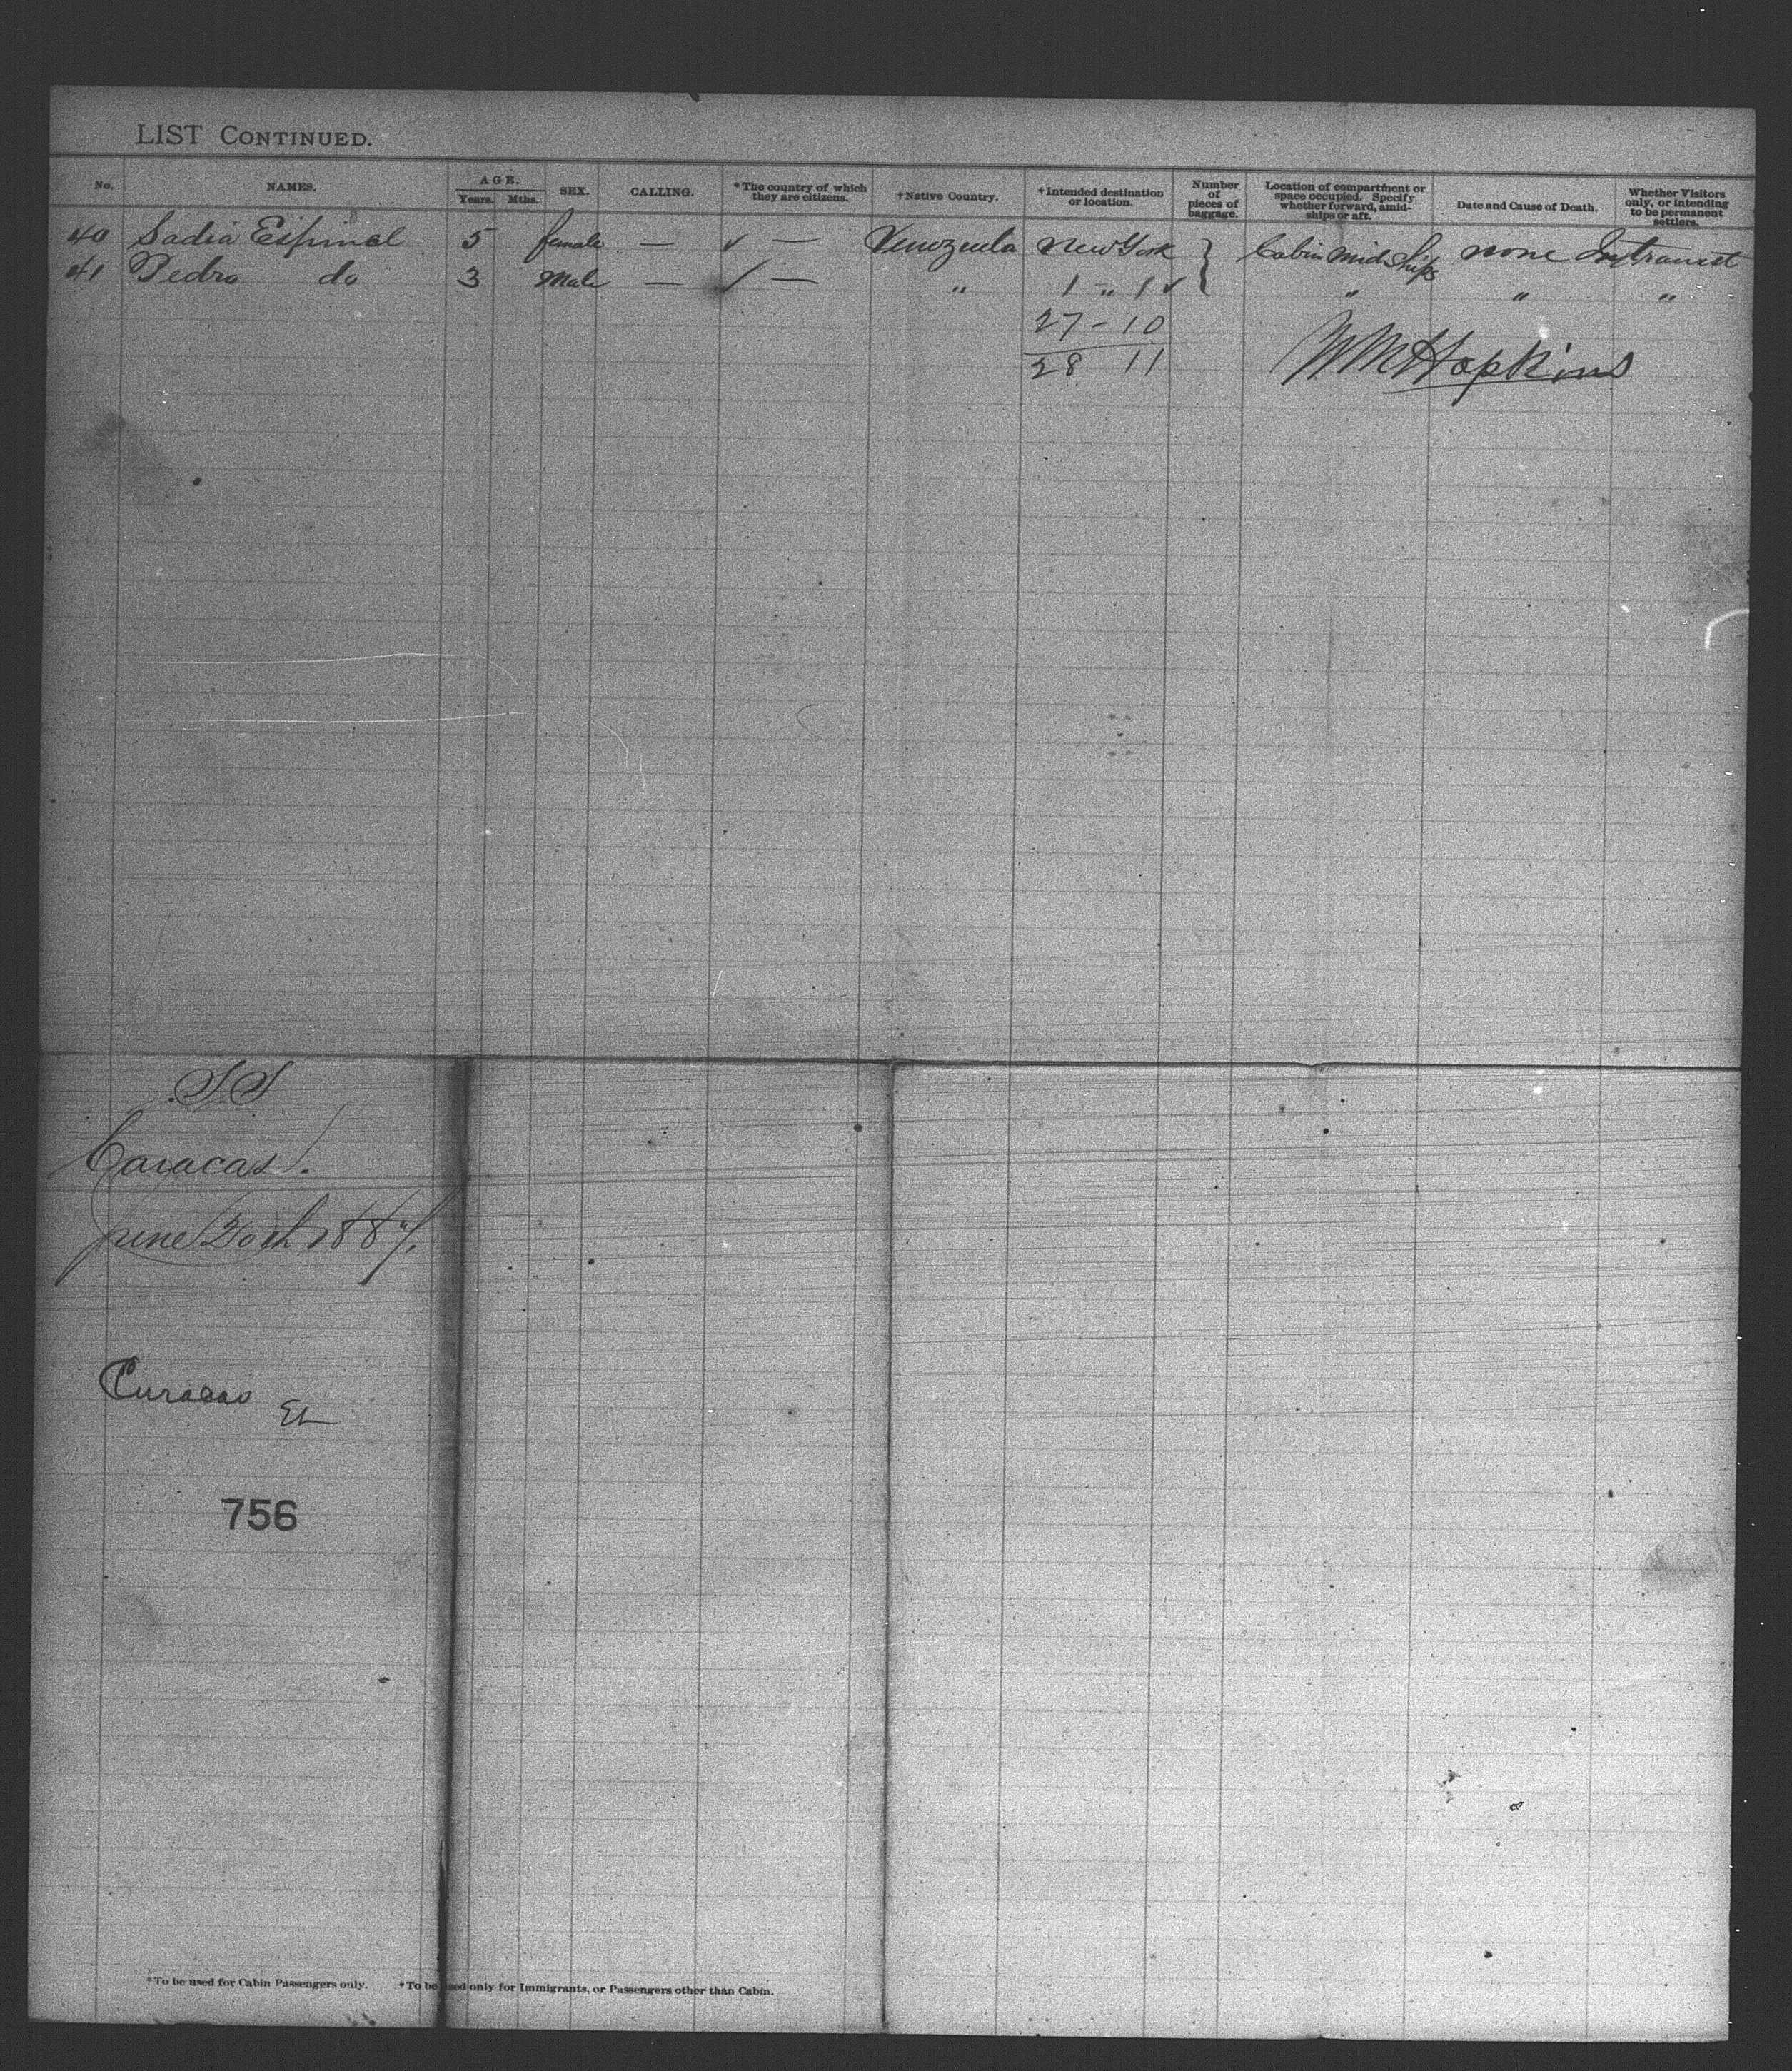 LIST CONTINUED.
No. NAMES. AGE. Years. Mths. SEX. CALLING. *The country of which they are citizens. †Native Country. †Intended destination or location. Number of pieces of baggage. Location of compartment or space occupied. Specify whether forward, amidships or aft. Date and Cause of Death. Whether Visitors only, or intending to be permanent settlers.
40 Sadia Espinal 5 female — ✓ — Venezuela New York } Cabin MidShips none Intransit
41 Pedro do 3 Male — ✓ — " 1 " 1 ✓ " " "
27 - 10
28 11
WM Hopkins
SS
Caracas.
June 20th 1887.
Curacao
756
*To be used for Cabin Passengers only. †To be used only for Immigrants, or Passengers other than Cabin.